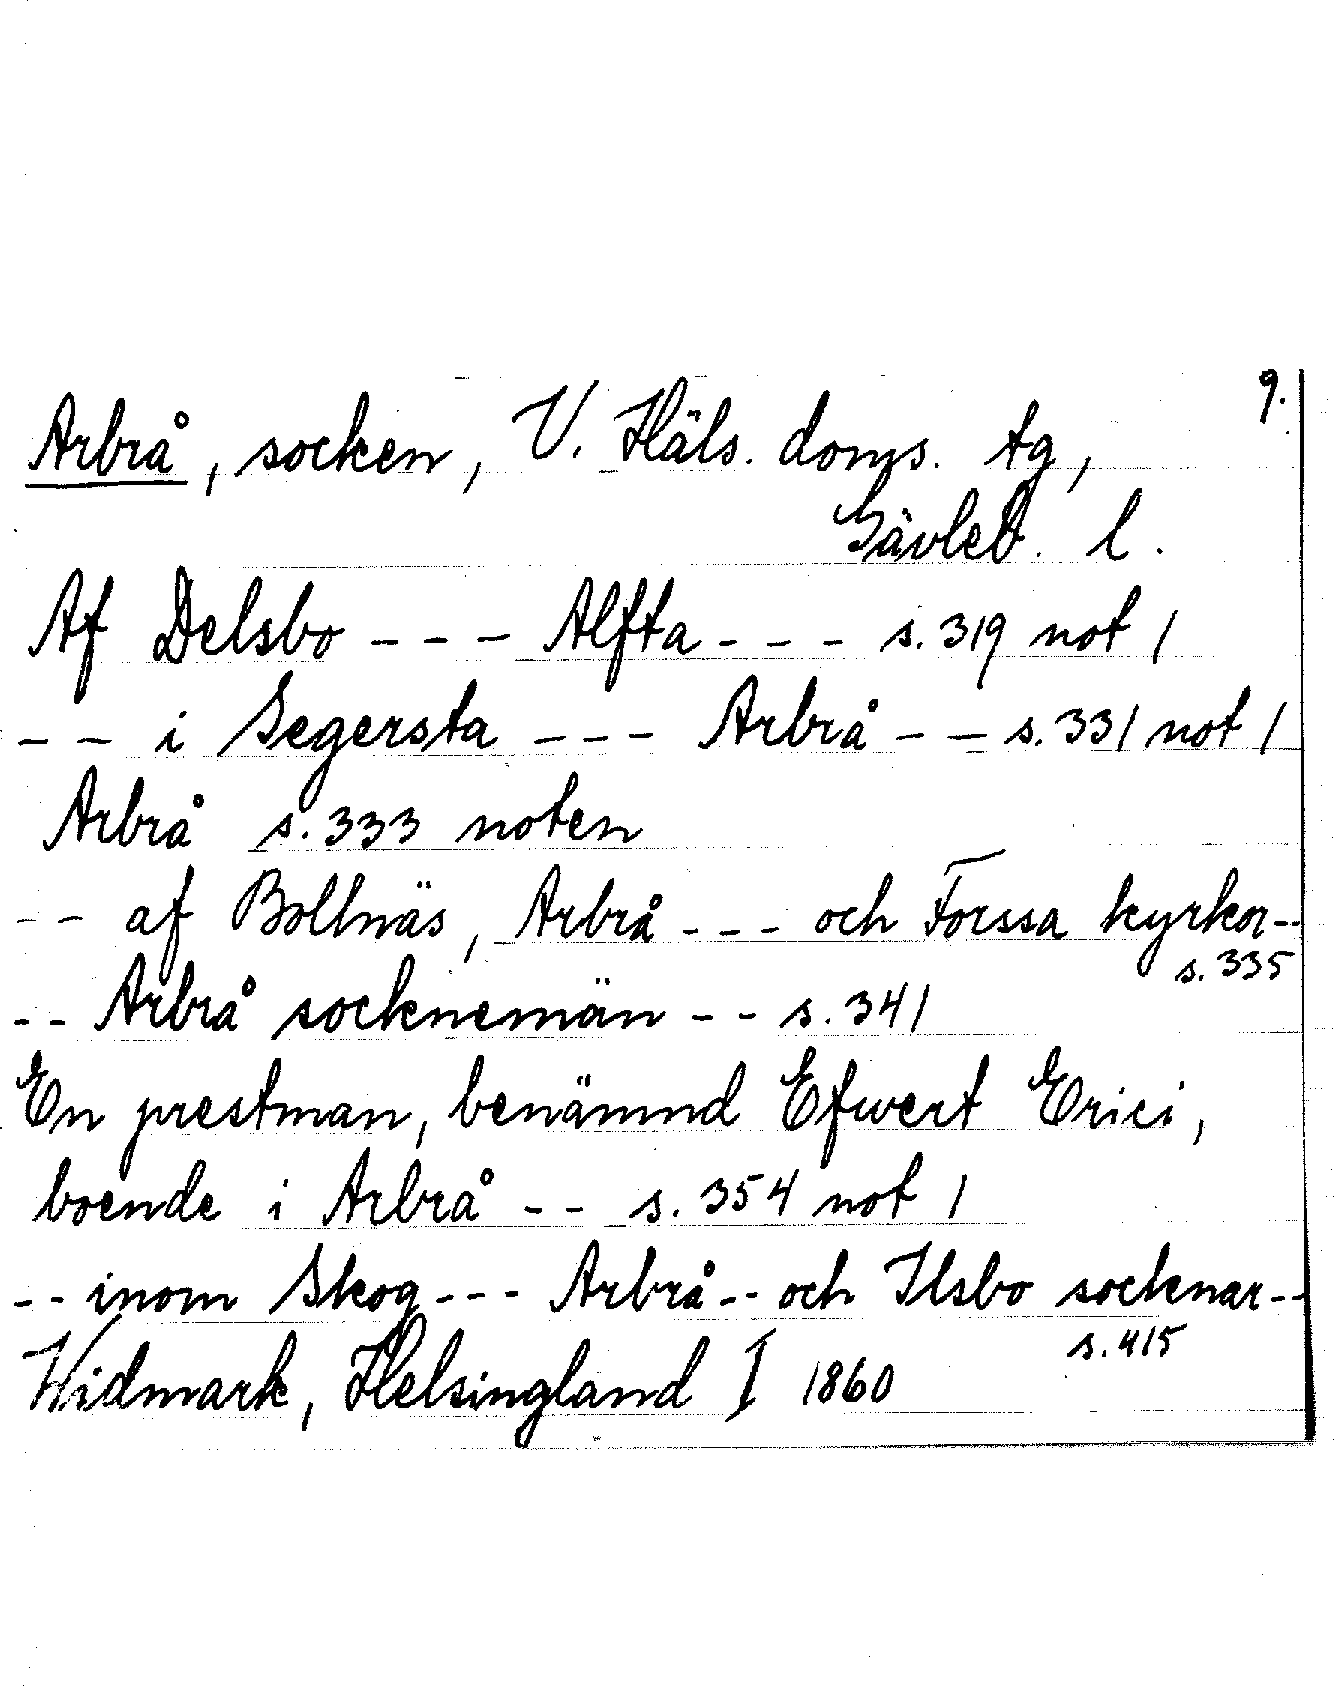 9.
Arbrå, socken, V. Häls. doms. tg,
Gävleb. l.
Af Delsbo - - - Alfta - - - s. 319 not 1
- - i Segersta - - - Arbrå - - s. 331 not 1
Arbrå s. 333 noten
- - af Bollnäs, Arbrå - - - och Forssa kyrkor - -
s. 335
- - Arbrå socknemän - - s. 341
En prestman, benämnd Efwert Erici,
boende i Arbrå - - s. 354 not 1
- - inom Skog - - - Arbrå - - och Ilsbo socknar - -
s. 415
Widmark, Helsingland I 1860